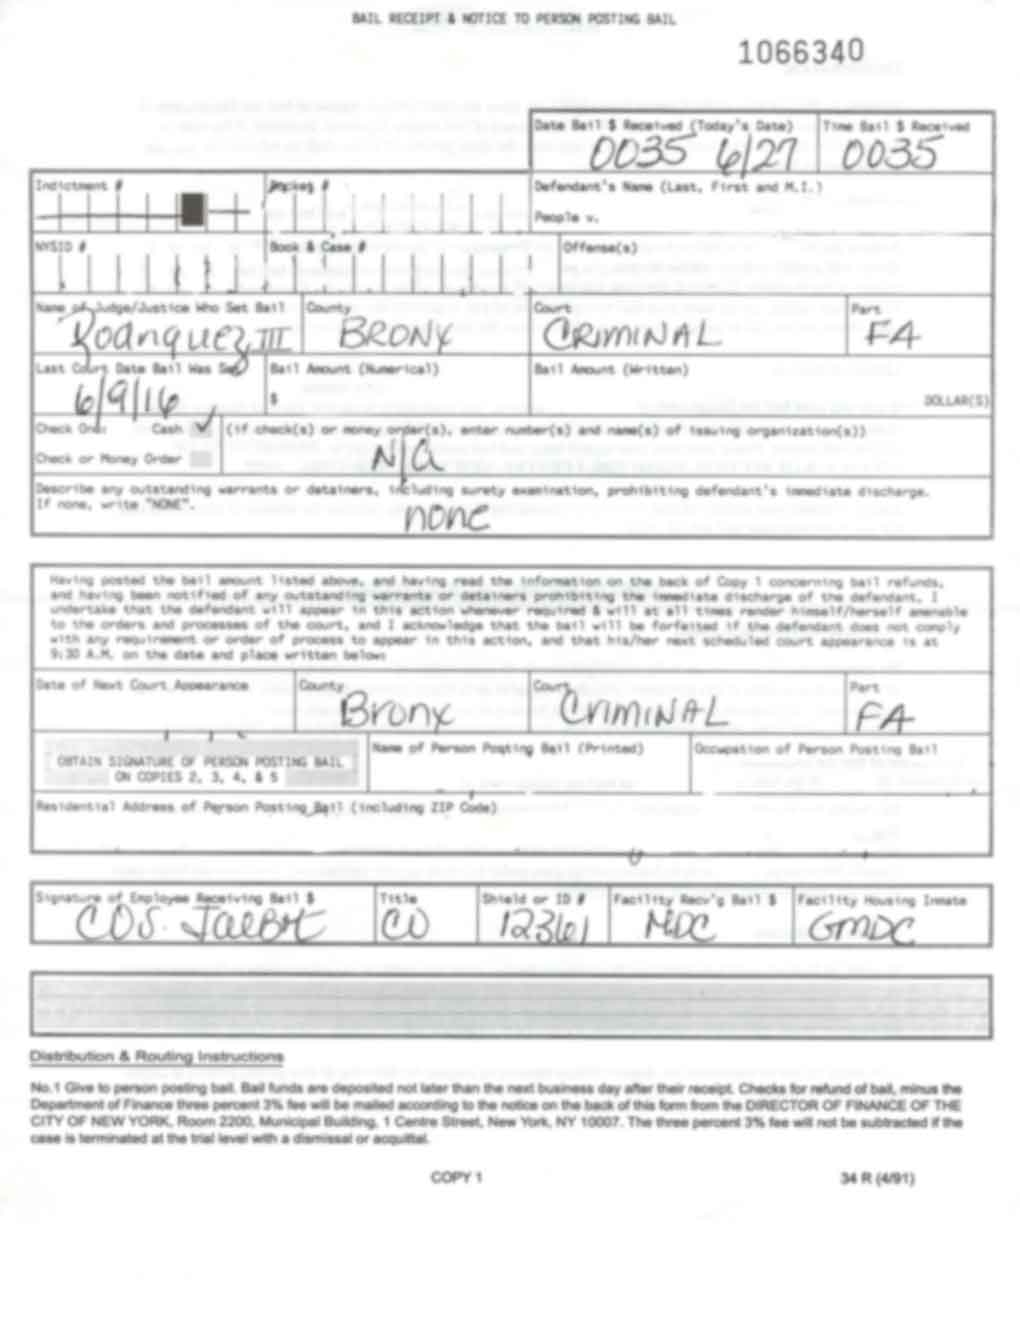 BAIL RECEIPT & NOTICE TO PERSON POSTING BAIL
1066340
Date Bail $ Received (Today's Date) Time Bail $ Received
0035 6/27 0035
Indictment # Docket # Defendant's Name (Last, First and M.I.)
People v.
NYSID # Book & Case # Offense(s)
Name of Judge/Justice Who Set Bail County Court Part
Rodriquez III BRONX CRIMINAL FA
Last Court Date Bail Was Set Bail Amount (Numerical) Bail Amount (Written)
6/9/16 $ DOLLAR(S)
Check One: Cash ✓ (if check(s) or money order(s), enter number(s) and name(s) of issuing organization(s))
Check or Money Order N/A
Describe any outstanding warrants or detainers, including surety examination, prohibiting defendant's immediate discharge.
If none, write "NONE".
none
Having posted the bail amount listed above, and having read the information on the back of Copy 1 concerning bail refunds,
and having been notified of any outstanding warrants or detainers prohibiting the immediate discharge of the defendant, I
undertake that the defendant will appear in this action whenever required & will at all times render himself/herself amenable
to the orders and processes of the court, and I acknowledge that the bail will be forfeited if the defendant does not comply
with any requirement or order of process to appear in this action, and that his/her next scheduled court appearance is at
9:30 A.M. on the date and place written below:
Date of Next Court Appearance County Court Part
Bronx Criminal FA
OBTAIN SIGNATURE OF PERSON POSTING BAIL
ON COPIES 2, 3, 4, & 5
Name of Person Posting Bail (Printed) Occupation of Person Posting Bail
Residential Address of Person Posting Bail (including ZIP Code)
Signature of Employee Receiving Bail $ Title Shield or ID # Facility Recv'g Bail $ Facility Housing Inmate
CO S. Talbot CO 12361 MDC GMDC
Distribution & Routing Instructions
No.1 Give to person posting bail. Bail funds are deposited not later than the next business day after their receipt. Checks for refund of bail, minus the
Department of Finance three percent 3% fee will be mailed according to the notice on the back of this form from the DIRECTOR OF FINANCE OF THE
CITY OF NEW YORK, Room 2200, Municipal Building, 1 Centre Street, New York, NY 10007. The three percent 3% fee will not be subtracted if the
case is terminated at the trial level with a dismissal or acquittal.
COPY 1 34 R (4/91)